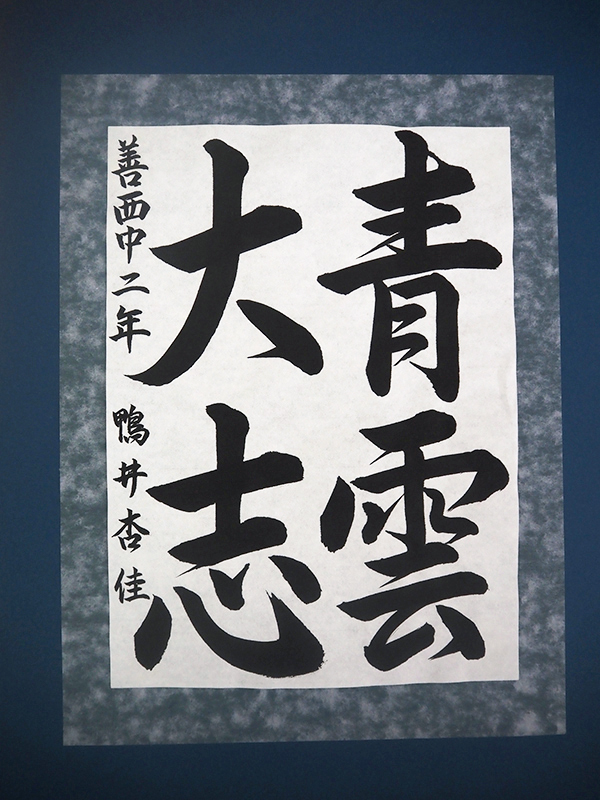 青雲
大志
善西中二年 鴨井杏佳